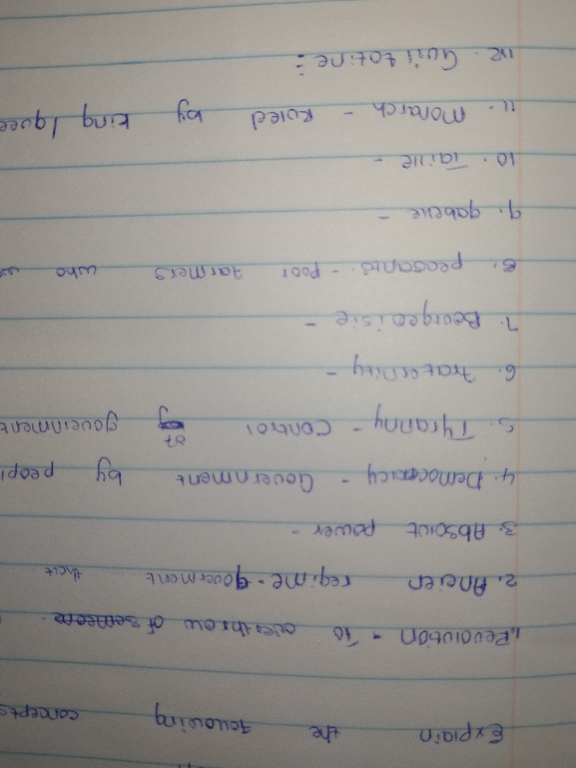 Explain the following concepts
1. Revolution - To overthrow of
2. Ancien regime - goverment that
3. Absolut power -
4. Democracy - Government by peopl
5. Tyranny - control of government
6. Fraternity -
7. Bourgeoisie -
8. peasants - poor farmers who w
9. gabelle -
10. Taille -
11. Monarch - Ruled by king/quee
12. Guillotine :